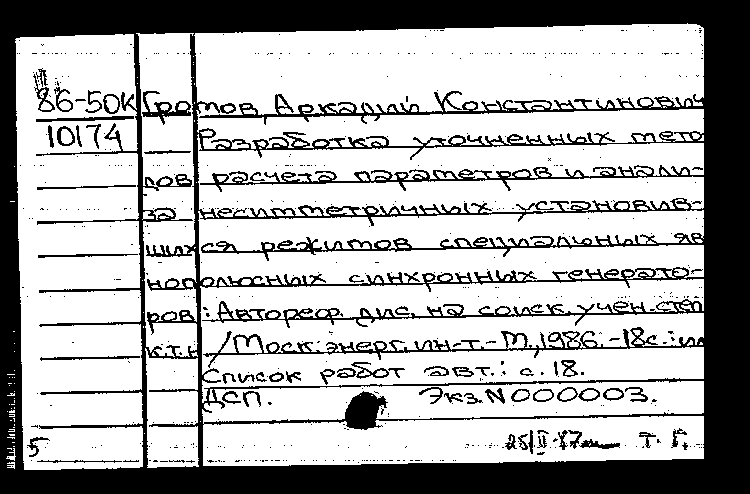 86-50К Громов, Аркадий Константинович
10174 Разработка уточненных мето
дов расчета параметров и анали-
за несимметричных установив-
шихся режимов специальных яв
нополюсных синхронных генерато-
ров: Автореф. дис. на соиск. учен. степ
к.т.н /Моск. энерг. ин-т. - М., 1986. - 18с.: ил
Список работ авт.: с. 18.
ДСП. Экз. N 000003.
5 Т. Г.